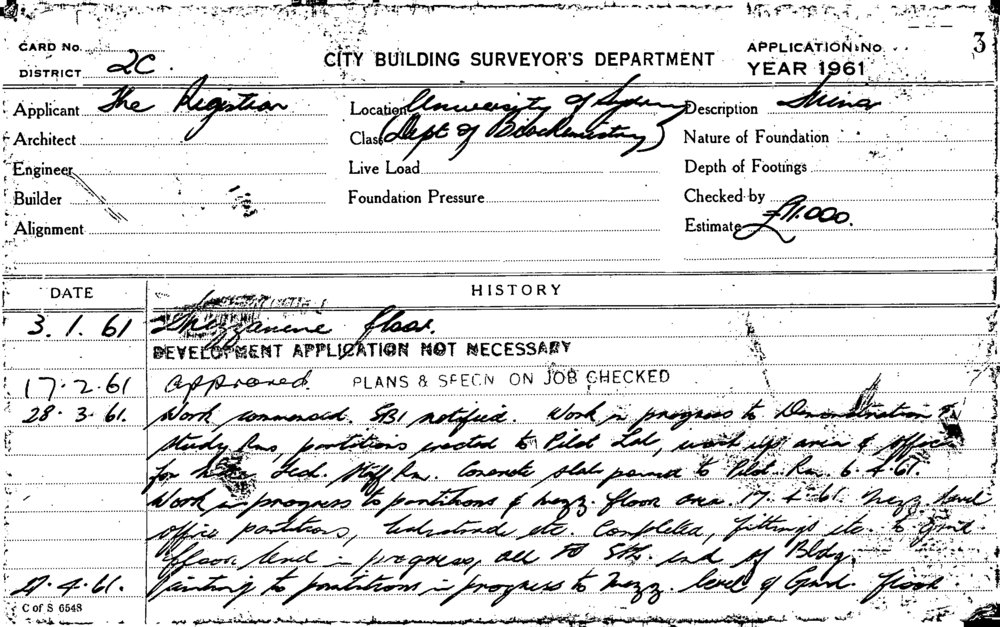 3
CARD No.
CITY BUILDING SURVEYOR'S DEPARTMENT
APPLICATION No.
DISTRICT 2C.
YEAR 1961
Applicant The Registrar
Location University of Sydney
Description Minor
Architect
Class (Dept of Biochemistry)
Nature of Foundation
Engineer
Live Load
Depth of Footings
Builder
Foundation Pressure
Checked by
Alignment
Estimate £11.000.
DATE
HISTORY
3.1.61 Mezzanine floor.
DEVELOPMENT APPLICATION NOT NECESSARY
17.2.61 approved. PLANS & SPECN ON JOB CHECKED
28.3.61. Work commenced. SBI notified. Work in progress to Demonstration &
Study Rms partitions erected to Pilot Lab, wash up area & office
for Tech. Staff Rm. Concrete slab poured to Pilot Rm 6.4.61.
Work in progress to partitions & mezz. floor area 17.4.61. Mezz level
office partitions, etc. Completed, fittings etc. to grnd
floor level in progress, all to Sth. end of Bldg.
27.4.61. Painting to partitions in progress to mezz level & Grnd. floor
C of S 6548